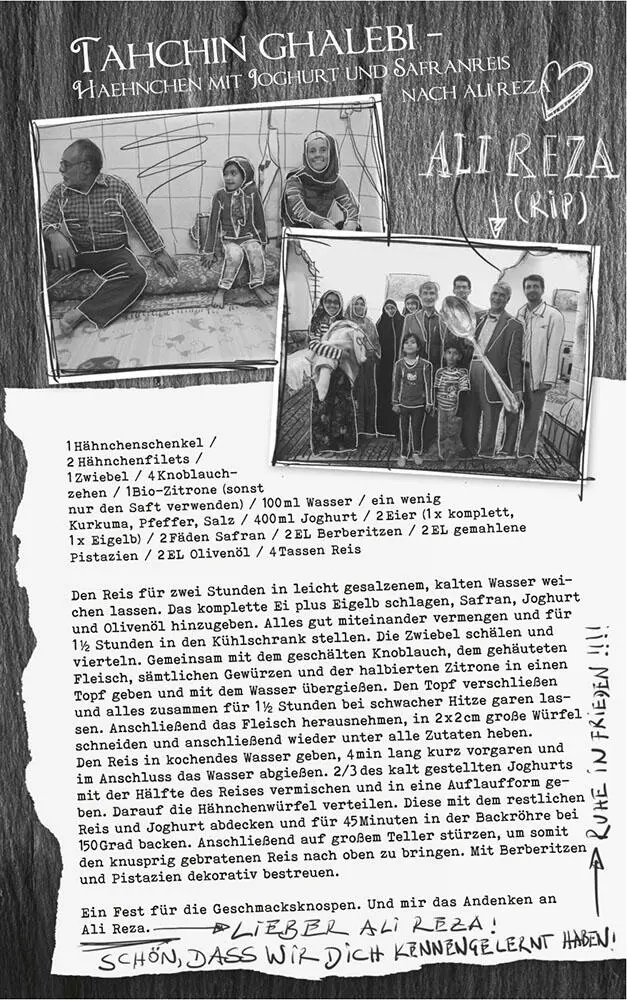 TAHCHIN GHALEBI –
HAEHNCHEN MIT JOGHURT UND SAFRANREIS
NACH ALI REZA
ALI REZA
(RIP)
1 Hähnchenschenkel /
2 Hähnchenfilets /
1 Zwiebel / 4 Knoblauch-
zehen / 1 Bio-Zitrone (sonst
nur den Saft verwenden) / 100 ml Wasser / ein wenig
Kurkuma, Pfeffer, Salz / 400 ml Joghurt / 2 Eier (1 x komplett,
1 x Eigelb) / 2 Fäden Safran / 2 EL Berberitzen / 2 EL gemahlene
Pistazien / 2 EL Olivenöl / 4 Tassen Reis
Den Reis für zwei Stunden in leicht gesalzenem, kalten Wasser wei-
chen lassen. Das komplette Ei plus Eigelb schlagen, Safran, Joghurt
und Olivenöl hinzugeben. Alles gut miteinander vermengen und für
1½ Stunden in den Kühlschrank stellen. Die Zwiebel schälen und
vierteln. Gemeinsam mit dem geschälten Knoblauch, dem gehäuteten
Fleisch, sämtlichen Gewürzen und der halbierten Zitrone in einen
Topf geben und mit dem Wasser übergießen. Den Topf verschließen
und alles zusammen für 1½ Stunden bei schwacher Hitze garen las-
sen. Anschließend das Fleisch herausnehmen, in 2x2 cm große Würfel
schneiden und anschließend wieder unter alle Zutaten heben.
Den Reis in kochendes Wasser geben, 4 min lang kurz vorgaren und
im Anschluss das Wasser abgießen. 2/3 des kalt gestellten Joghurts
mit der Hälfte des Reises vermischen und in eine Auflaufform ge-
ben. Darauf die Hähnchenwürfel verteilen. Diese mit dem restlichen
Reis und Joghurt abdecken und für 45 Minuten in der Backröhre bei
150 Grad backen. Anschließend auf großem Teller stürzen, um somit
den knusprig gebratenen Reis nach oben zu bringen. Mit Berberitzen
und Pistazien dekorativ bestreuen.
Ein Fest für die Geschmacksknospen. Und mir das Andenken an
Ali Reza.
LIEBER ALI REZA!
SCHÖN, DASS WIR DICH KENNENGELERNT HABEN!
RUHE IN FRIEDEN !!!!